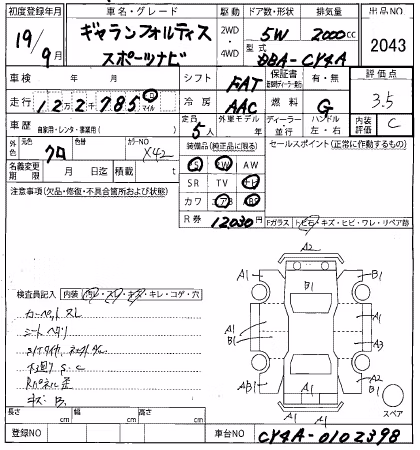 初度登録年月 車名・グレード 駆動 ドア数・形状 排気量 出品NO
19/9月 ギャランフォルティス スポーツナビ 2WD・4WD 5W 2000cc 2043
型式 DBA-CY4A
車検 年 月 シフト FAT 保証書 有・無 評価点
走行 12万2千785 マイル 冷房 AAC 燃料 G 3.5
車歴 自家用・レンタ・事業用( ) 定員 5人 外車モデル ディーラー・並行 ハンドル 左・右 内装評価 C
外色 元色 クロ 色替 カラーNO X42 装備品(純正品に限る) セールスポイント(正常に作動するもの)
PS PW AW
名義変更期限 月 日迄 積載 t SR TV ナビ
注意事項(欠品・修復・不具合箇所および状態) カワ AB ABS
R券 12030円 Fガラス トビ石・キズ・ヒビ・ワレ・リペア跡
A2
A1 B1 B1
検査員記入 内装 汚レ・スレ・キズ・キレ・コゲ・穴
カーペットスレ
シートヘタリ
A1 B1 A1 A3
下廻りS.C
Rパネル歪
キズB.
AB1 A1 A1 A2 B1
スペア
長さ cm 幅 cm 高さ cm
登録NO 車台NO CY4A-0102398